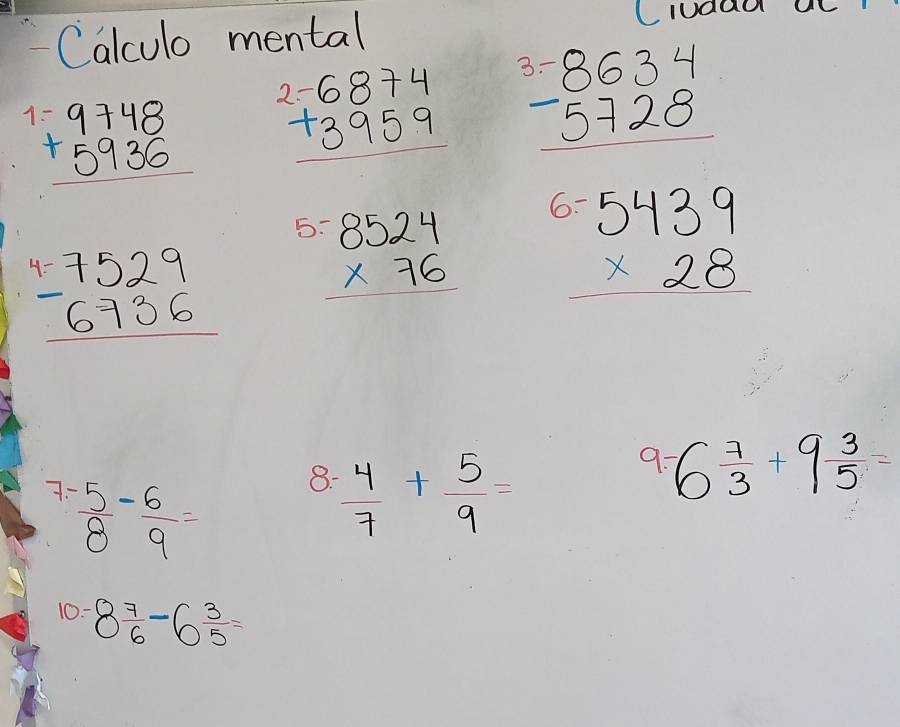 Ciudad
- Cálculo mental
1.- 9748
+ 5936
2.- 6874
+ 3959
3.- 8634
- 5728
4.- 7529
- 6736
5.- 8524
x 76
6.- 5439
x 28
7.- 5/8 - 6/9 =
8.- 4/7 + 5/9 =
9.- 6 7/3 + 9 3/5 =
10.- 8 7/6 - 6 3/5 =